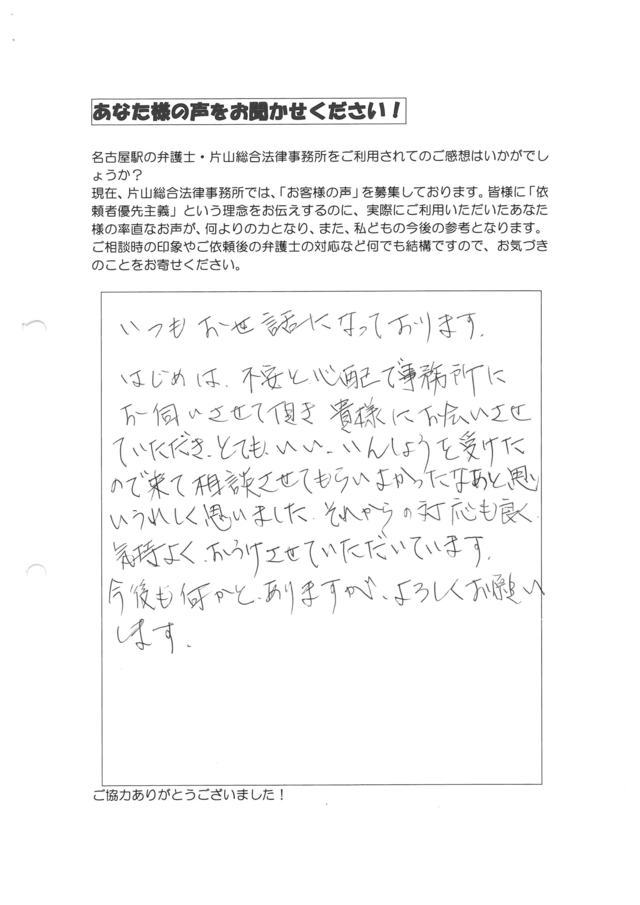 あなた様の声をお聞かせください！
名古屋駅の弁護士・片山総合法律事務所をご利用されてのご感想はいかがでし
ょうか？
現在、片山総合法律事務所では、「お客様の声」を募集しております。皆様に「依
頼者優先主義」という理念をお伝えするのに、実際にご利用いただいたあなた
様の率直なお声が、何よりの力となり、また、私どもの今後の参考となります。
ご相談時の印象やご依頼後の弁護士の対応など何でも結構ですので、お気づき
のことをお寄せください。
いつもお世話になっております。
はじめは、不安と心配で事務所に
お伺いさせて頂き 貴様にお会いさせ
ていただき、とても、いい、いんしょうを受けた
ので来て相談させてもらいよかったなあと思い
いうれしく思いました。それからの対応も良く、
気持よく、おうけさせていただいています。
今後も何かと、ありますが、よろしくお願い
します。
ご協力ありがとうございました！